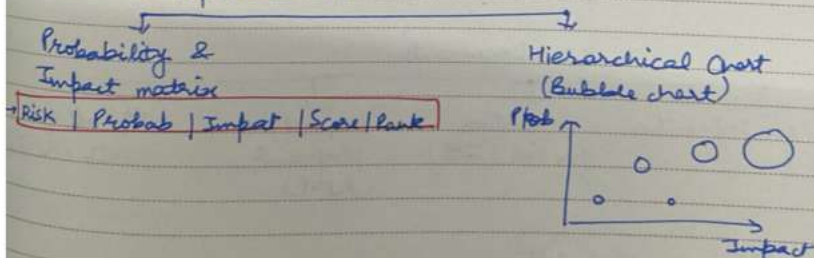 Probability &
Impact matrix
→ Risk | Probab | Impact | Score | Rank
Hierarchical Chart
(Bubble chart)
Prob
Impact